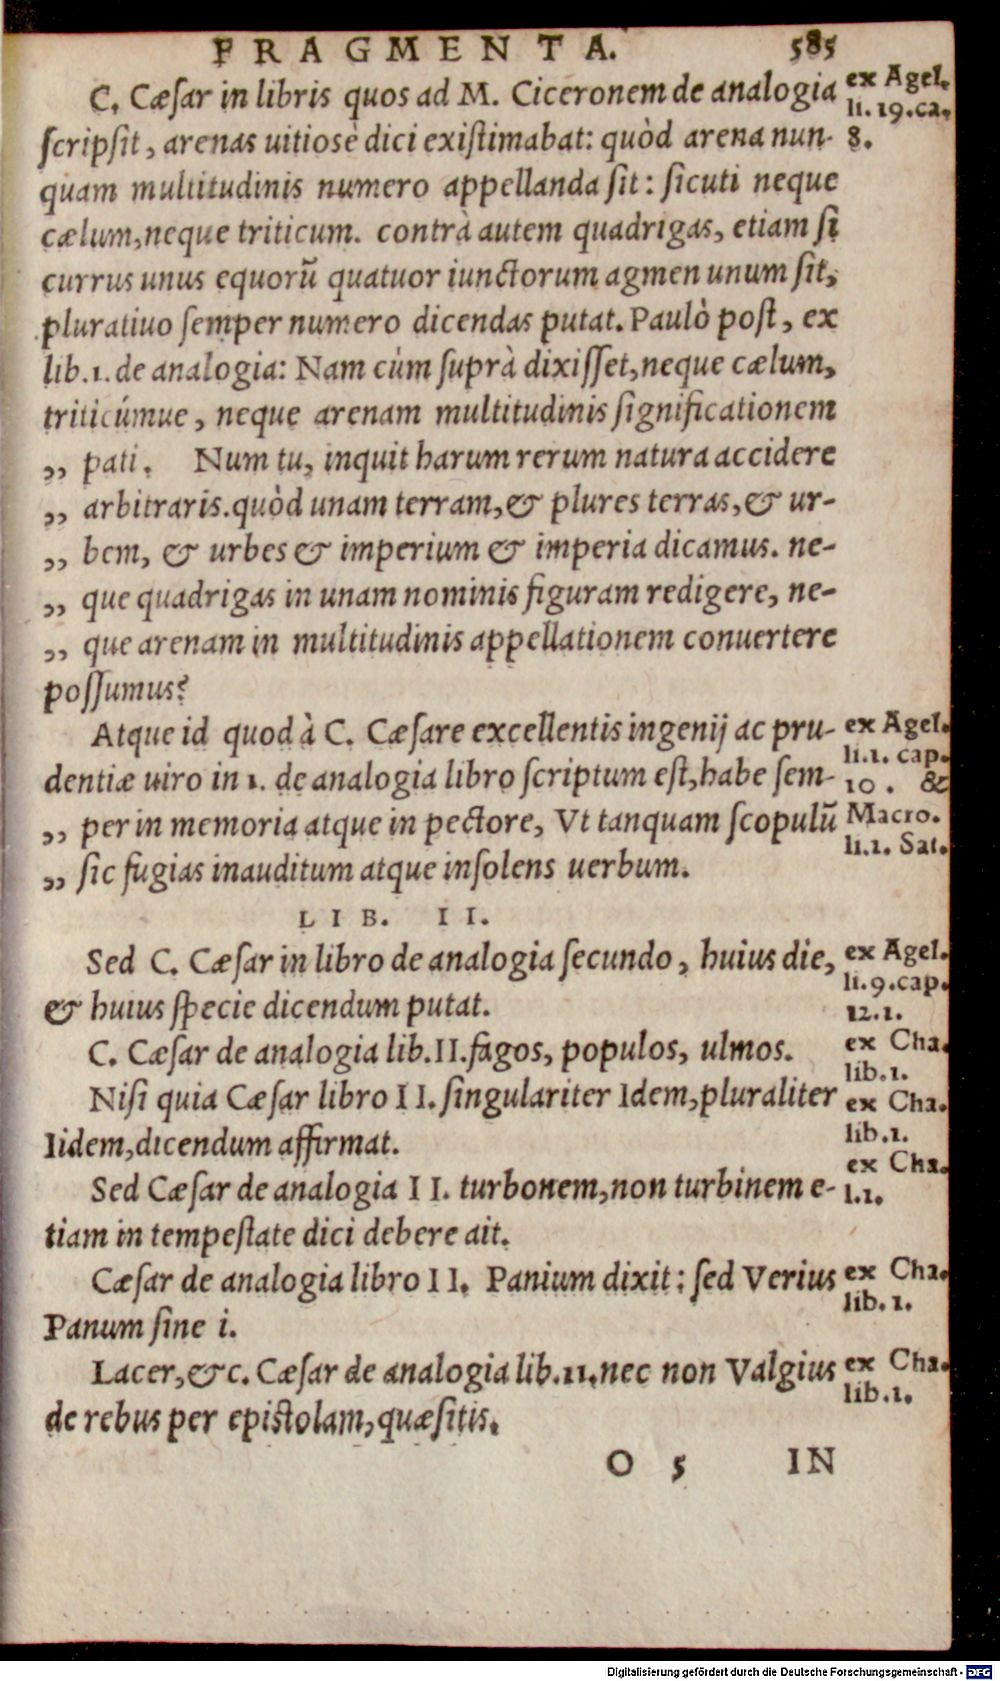 FRAGMENTA. 585
C. Cæſar in libris quos ad M. Ciceronem de analogia
ex Agel.
li. 19. ca.
8.
ſcripſit, arenas uitioſe dici exiſtimabat: quòd arena nun-
quam multitudinis numero appellanda ſit: ſicuti neque
cælum, neque triticum. contrà autem quadrigas, etiam ſi
currus unus equorũ quatuor iunctorum agmen unum ſit,
pluratiuo ſemper numero dicendas putat. Paulò poſt, ex
lib. 1. de analogia: Nam cùm ſuprà dixiſſet, neque cælum,
triticúmue, neque arenam multitudinis ſignificationem
,, pati. Num tu, inquit harum rerum natura accidere
,, arbitraris. quòd unam terram, & plures terras, & ur-
,, bem, & urbes & imperium & imperia dicamus. ne-
,, que quadrigas in unam nominis figuram redigere, ne-
,, que arenam in multitudinis appellationem conuertere
poſſumus?
Atque id quod à C. Cæſare excellentis ingenij ac pru-
ex Agel.
li. 1. cap.
10. &
Macro.
li. 1. Sat.
dentiæ uiro in 1. de analogia libro ſcriptum eſt, habe ſem-
,, per in memoria atque in pectore, Vt tanquam ſcopulũ
,, ſic fugias inauditum atque inſolens uerbum.
LIB. II.
Sed C. Cæſar in libro de analogia ſecundo, huius die,
ex Agel.
li. 9. cap.
12. 1.
& huius ſpecie dicendum putat.
C. Cæſar de analogia lib. II. fagos, populos, ulmos.
ex Cha.
lib. 1.
Niſi quia Cæſar libro II. ſingulariter Idem, pluraliter
ex Cha.
lib. 1.
Iidem, dicendum affirmat.
Sed Cæſar de analogia II. turbonem, non turbinem e-
ex Cha.
l. 1.
tiam in tempeſtate dici debere ait.
Cæſar de analogia libro II. Panium dixit: ſed Verius
ex Cha.
lib. 1.
Panum ſine i.
Lacer, &c. Cæſar de analogia lib. 11. nec non Valgius
ex Cha.
lib. 1.
de rebus per epiſtolam, quæſitis.
O 5 IN
Digitalisierung gefördert durch die Deutsche Forschungsgemeinschaft - DFG